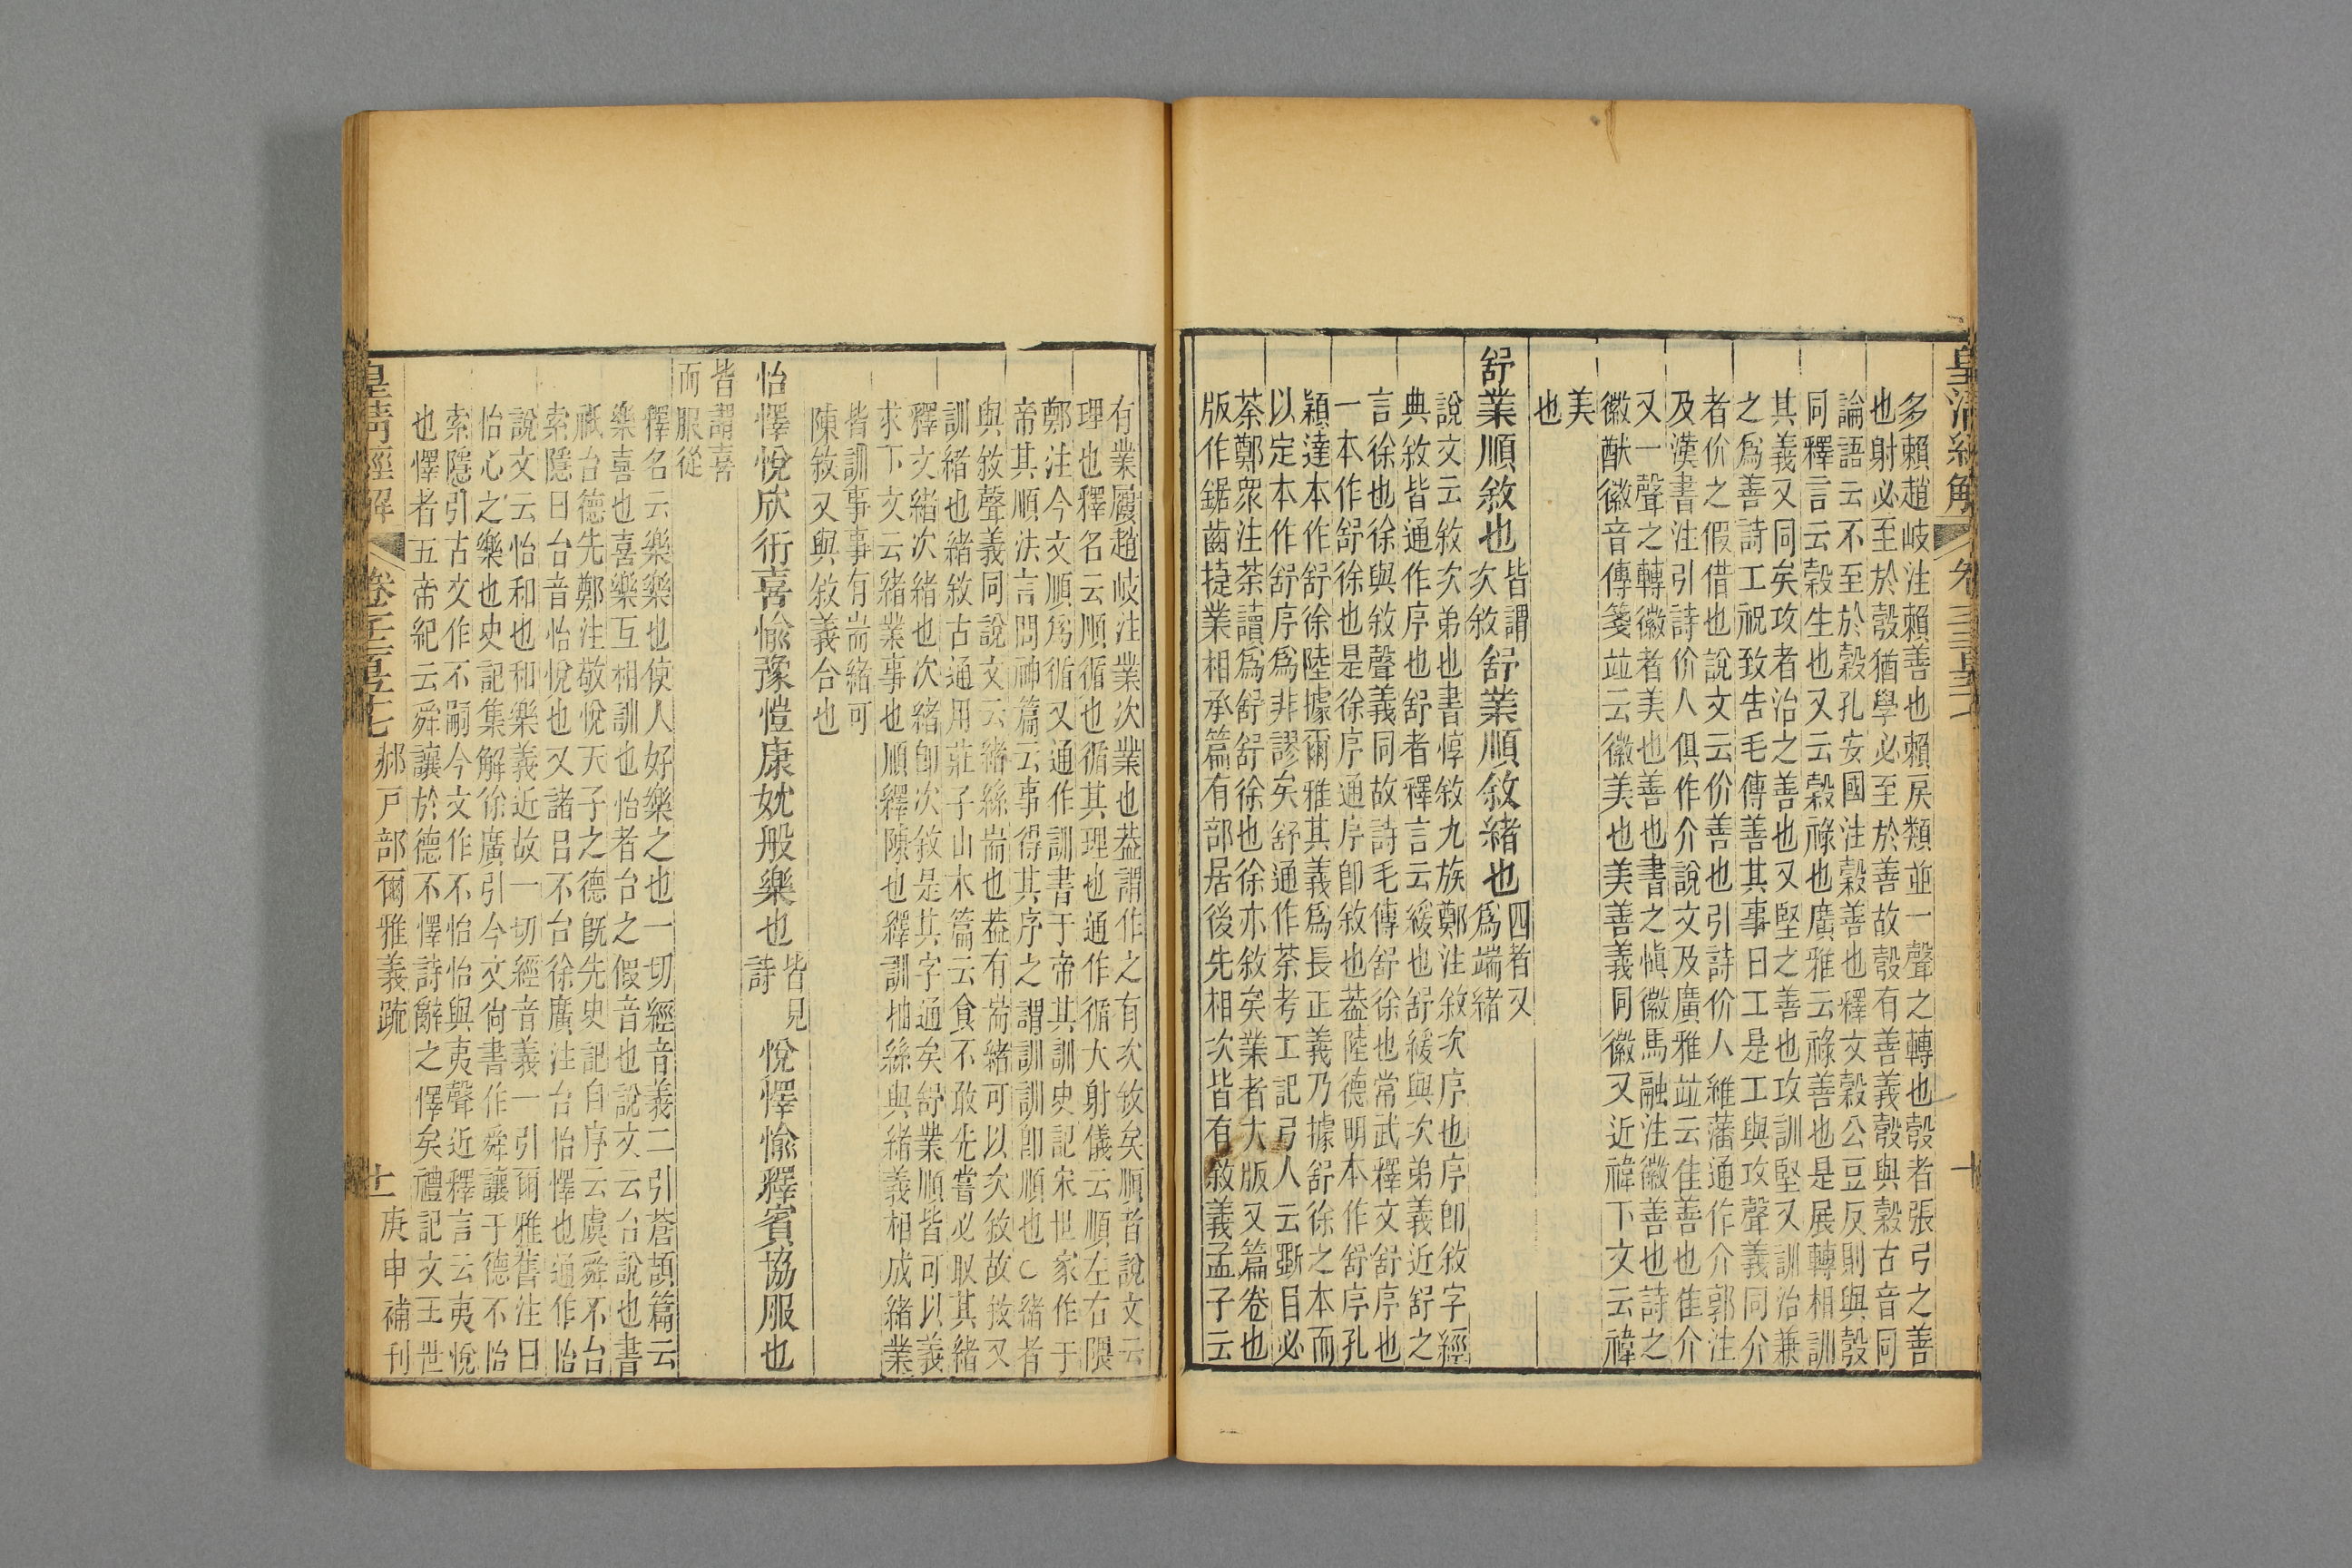 皇清經解
多賴趙岐注賴善也賴戾類並一聲之轉也彀者張弓之善
也射必至於彀猶學必至於善故彀有善義彀與穀古音同
論語云不至於穀孔安國注穀善也釋文穀公豆反則與彀
同釋言云穀生也又云穀祿也廣雅云祿善也是展轉相訓
其義又同矣攻者治之善也又堅之善也攻訓堅又訓治兼
之爲善詩工祝致告毛傳善其事曰工是工與攻聲義同介
者价之假借也說文云价善也引詩价人維藩通作介郭注
及漢書注引詩价人俱作介說文及廣雅竝云佳善也隹介
又一聲之轉徽者美也善也書之愼徽馬融注徽善也詩之
徽猷徽音傳箋竝云徽美也美善義同徽又近禕下文云禕
美
也
舒業順敘也
皆謂
次敘
舒業順敘緒也
四者又
爲端緒
說文云敘次弟也書惇敘九族鄭注敘次序也序卽敘字經
典敘皆通作序也舒者釋言云緩也舒緩與次弟義近舒之
言徐也徐與敘聲義同故詩毛傳舒徐也常武釋文舒序也
一本作舒徐也是徐序通序卽敘也葢陸德明本作舒序孔
穎達本作舒徐陸據爾雅其義爲長正義乃據舒徐之本而
以定本作舒序爲非謬矣舒通作荼考工記弓人云斲目必
荼鄭衆注荼讀爲舒舒徐也徐亦敘矣業者大版又篇卷也
版作鋸齒捷業相承篇有部居後先相次皆有敘義孟子云
有業屨趙岐注業次業也葢謂作之有次敘矣順者說文云
理也釋名云順循也循其理也通作循大射儀云順左右隈
鄭注今文順爲循又通作訓書于帝其訓史記宋世家作于
帝其順法言問神篇云事得其序之謂訓訓卽順也〇緒者
與敘聲義同說文云緒絲耑也葢有耑緒可以次敘故敘又
訓緒也緒敘古通用莊子山木篇云食不敢先嘗必取其緒
釋文緒次緒也次緒卽次敘是其字通矣舒業順皆可以義
求下文云緒業事也順釋陳也繹訓抽絲與緒義相成緒業
皆訓事事有耑緒可
陳敘又與敘義合也
怡懌悅欣衎喜愉豫愷康妉般樂也
皆見
詩
悅懌愉釋賓協服也
皆謂喜
而服從
釋名云樂樂也使人好樂之也一切經音義二引蒼頡篇云
樂喜也喜樂互相訓也怡者台之假音也說文云台說也書
祗台德先鄭注敬悅天子之德旣先史記自序云虞舜不台
索隱曰台音怡悅也又諸呂不台徐廣注台怡懌也通作怡
說文云怡和也和樂義近故一切經音義一引爾雅舊注曰
怡心之樂也史記集解徐廣引今文尙書作舜讓于德不怡
索隱引古文作不嗣今文作不怡怡與夷聲近釋言云夷悅
也懌者五帝紀云舜讓於德不懌詩辭之懌矣禮記文王世
皇清經解 卷千二百五十七 郝戶部爾雅義疏 十一 庚申補刊